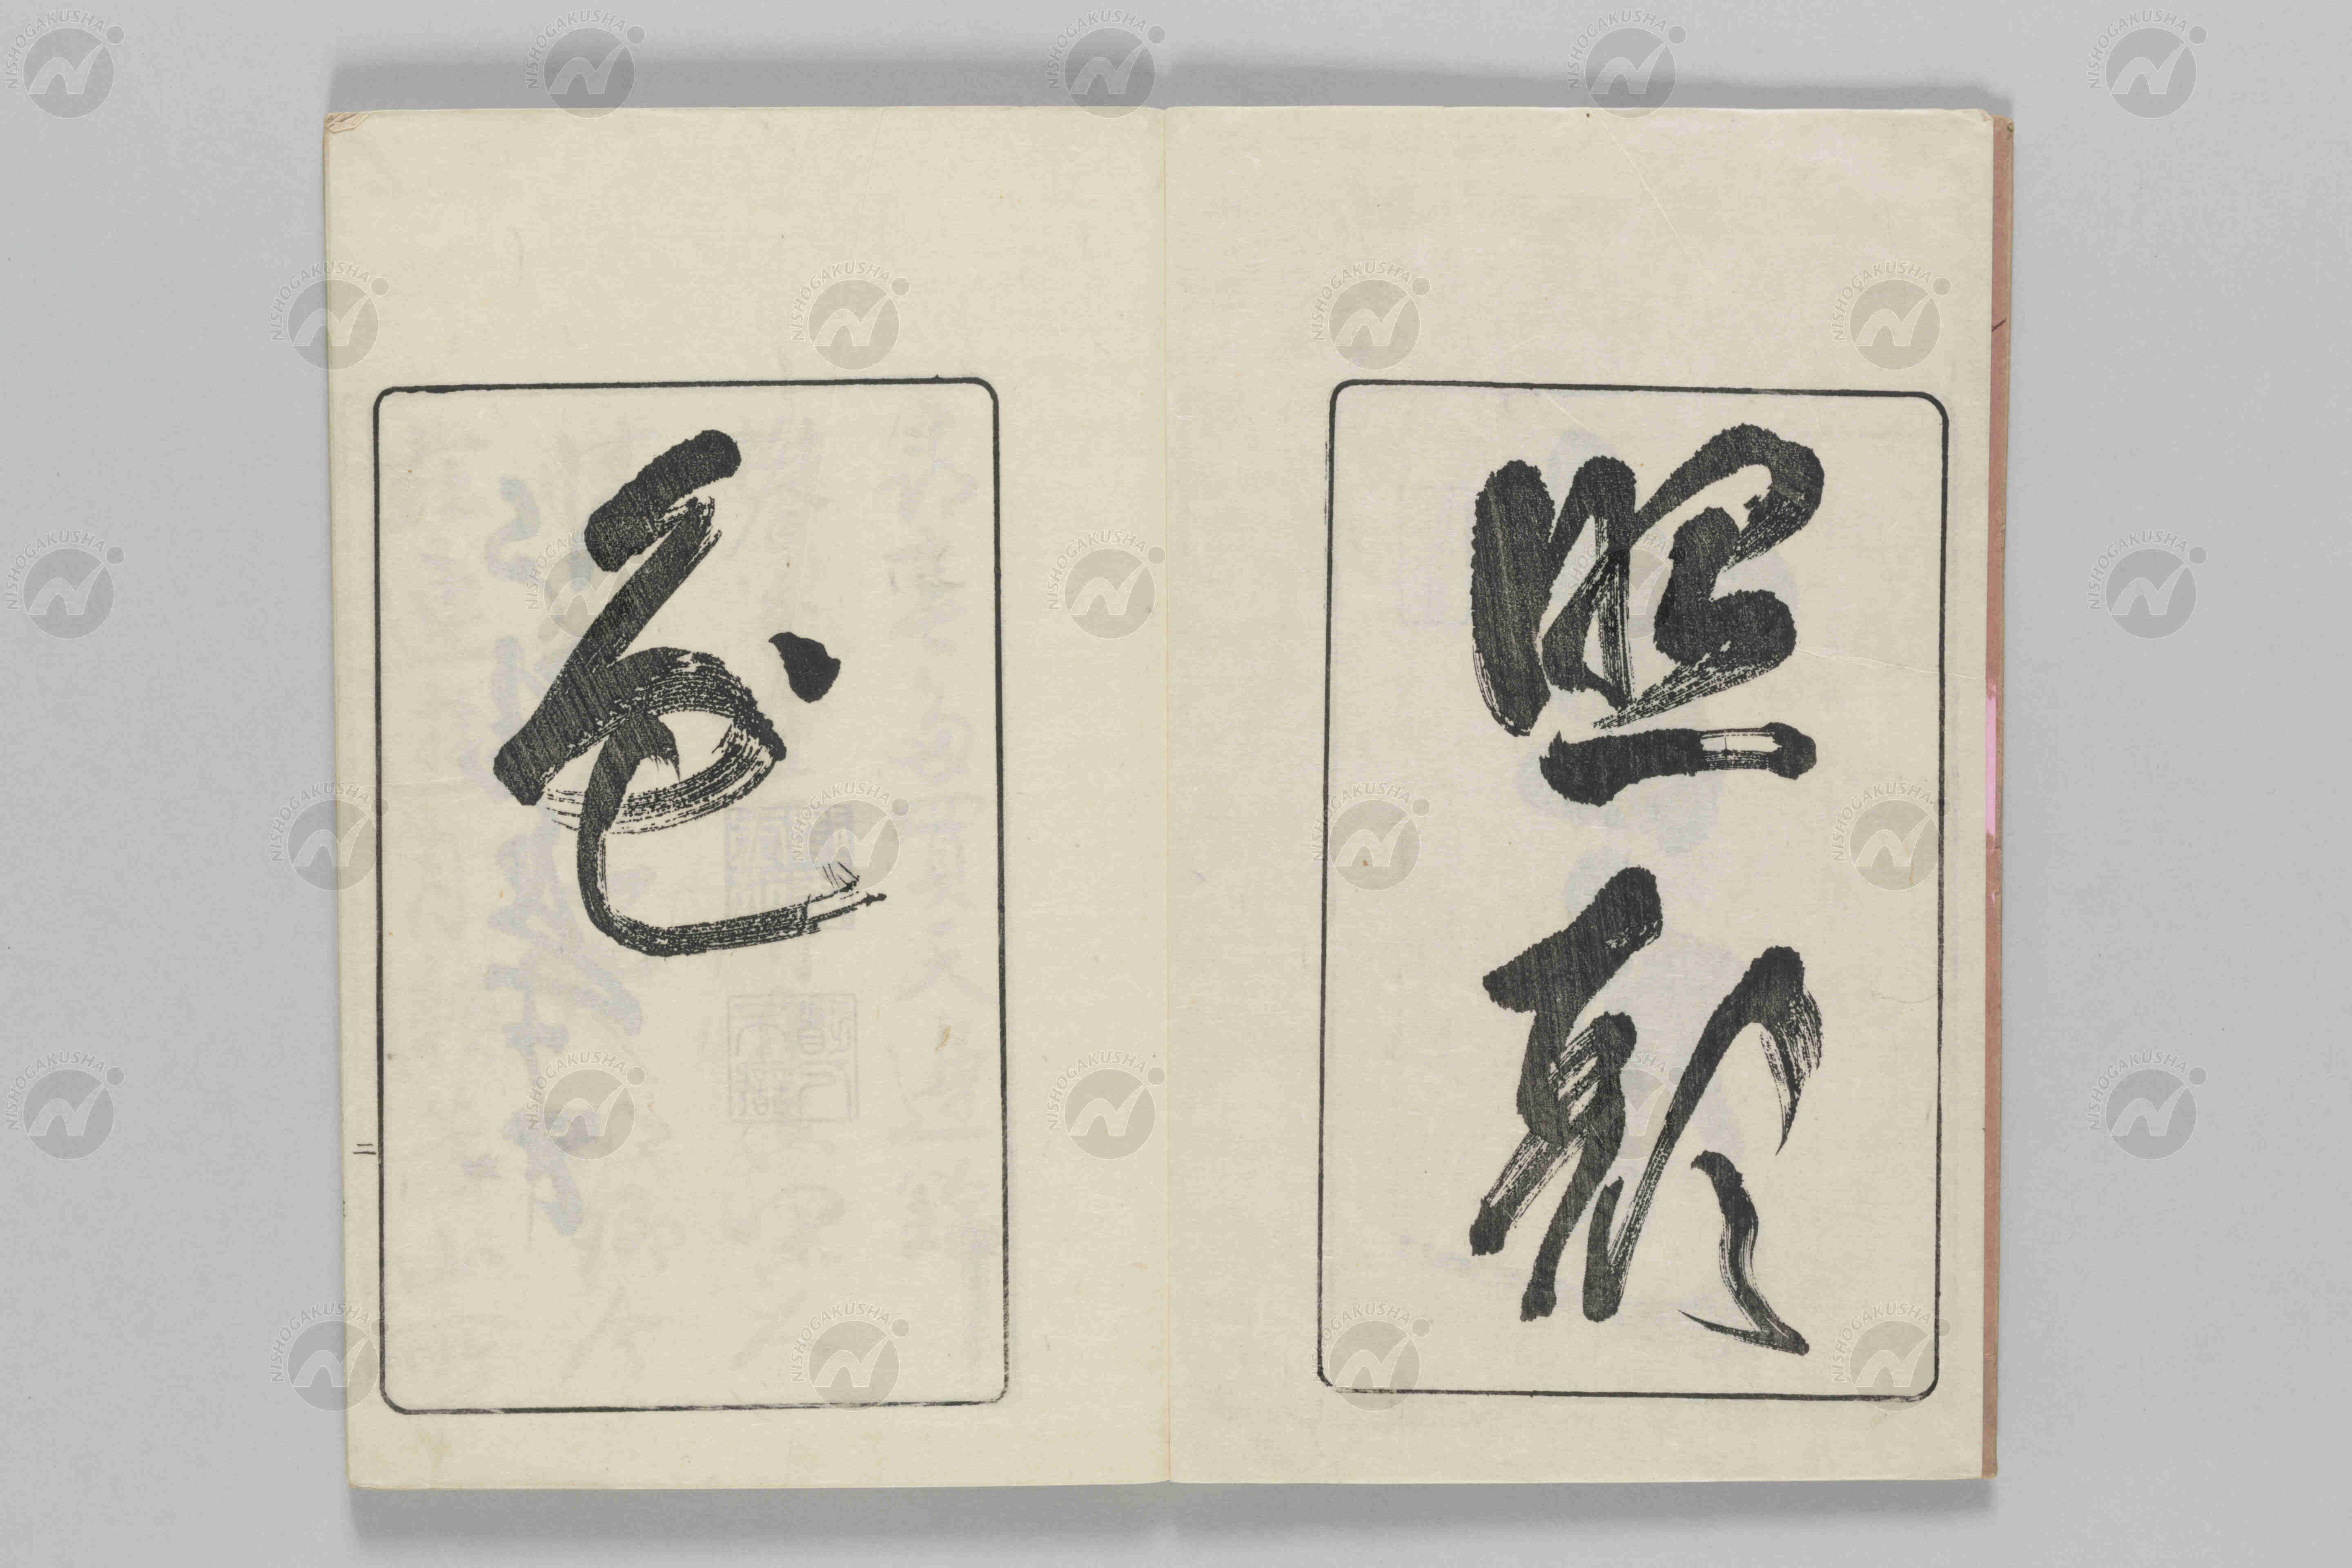 照顔
色
NISHOGAKUSHA